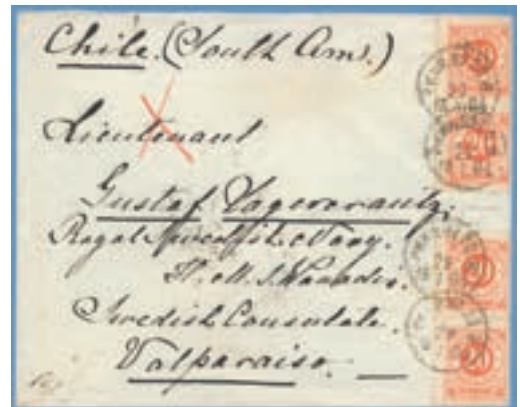 Chile. (South Am.)
Lieutenant
Gustaf Lagercrantz.
Royal Swedish Navy.
H. M. S. Vanadis.
Swedish Consulate.
Valparaiso.